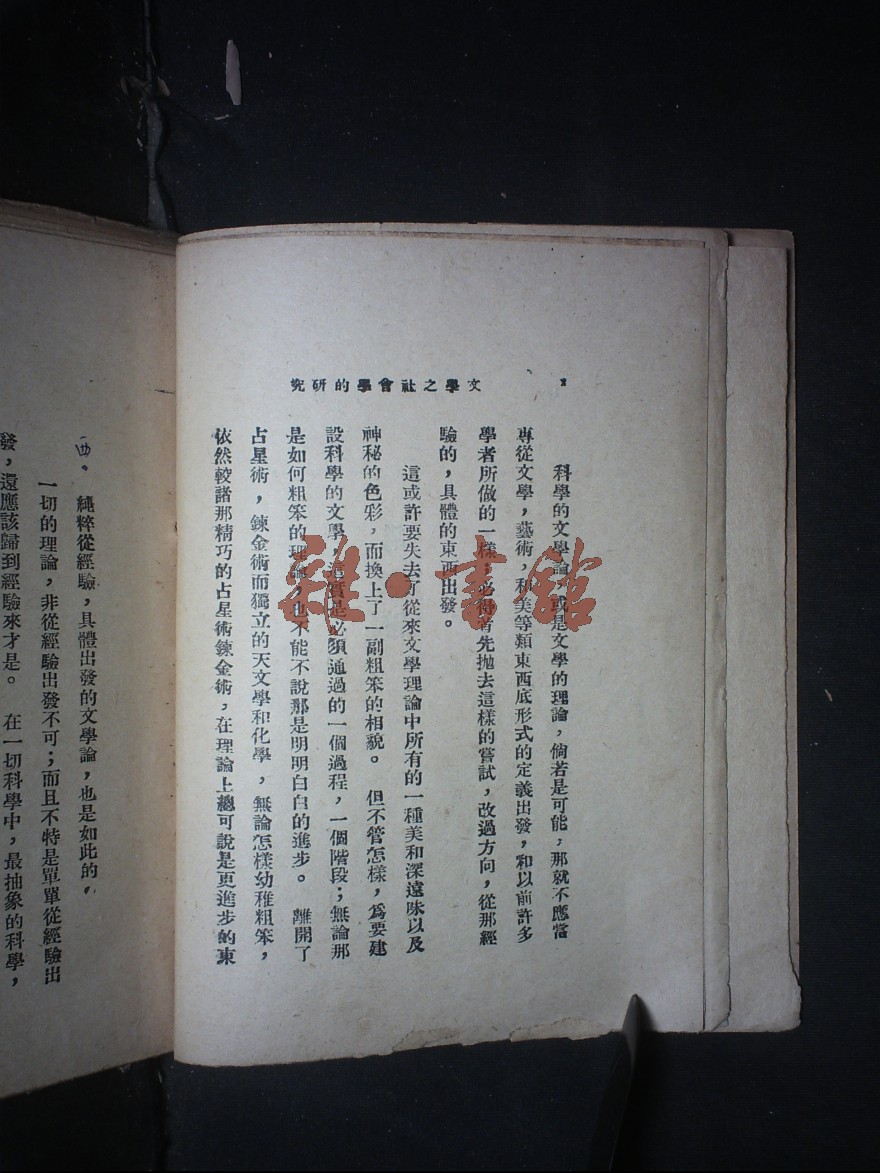 文學之社會學的研究
科學的文學論，或是文學的理論，倘若是可能，那就不應當
專從文學，藝術，和美等類東西底形式的定義出發，和以前許多
學者所做的一樣；必得首先拋去這樣的嘗試，改過方向，從那經
驗的，具體的東西出發。
這或許要失去了從來文學理論中所有的一種美和深遠味以及
神秘的色彩，而換上了一副粗笨的相貌。 但不管怎樣，爲要建
設科學的文學，這實是必須通過的一個過程，一個階段；無論那
是如何粗笨的理論，也不能不說那是明明白白的進步。 離開了
占星術，鍊金術而獨立的天文學和化學，無論怎樣幼稚粗笨，
依然較諸那精巧的占星術鍊金術，在理論上總可說是更進步的東
西。 純粹從經驗，具體出發的文學論，也是如此的。
一切的理論，非從經驗出發不可；而且不特是單單從經驗出
發，還應該歸到經驗來才是。 在一切科學中，最抽象的科學，
雜·書館